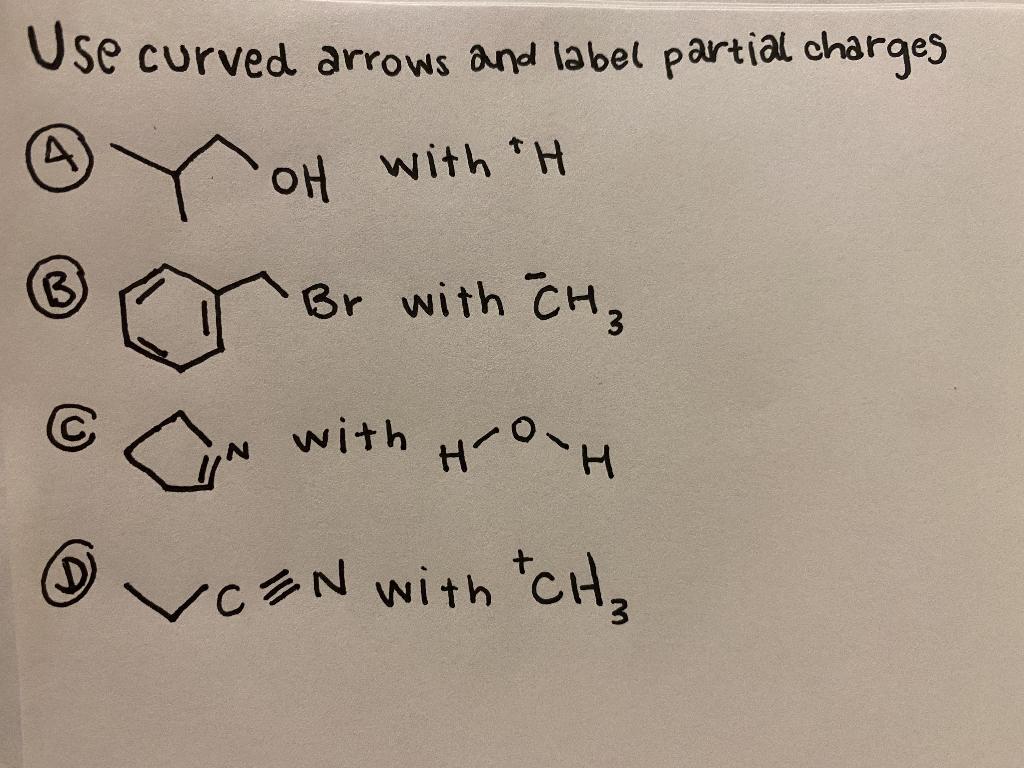 Use curved arrows and label partial charges
A OH with +H
B Br with -CH3
C N with H O H
D C≡N with +CH3